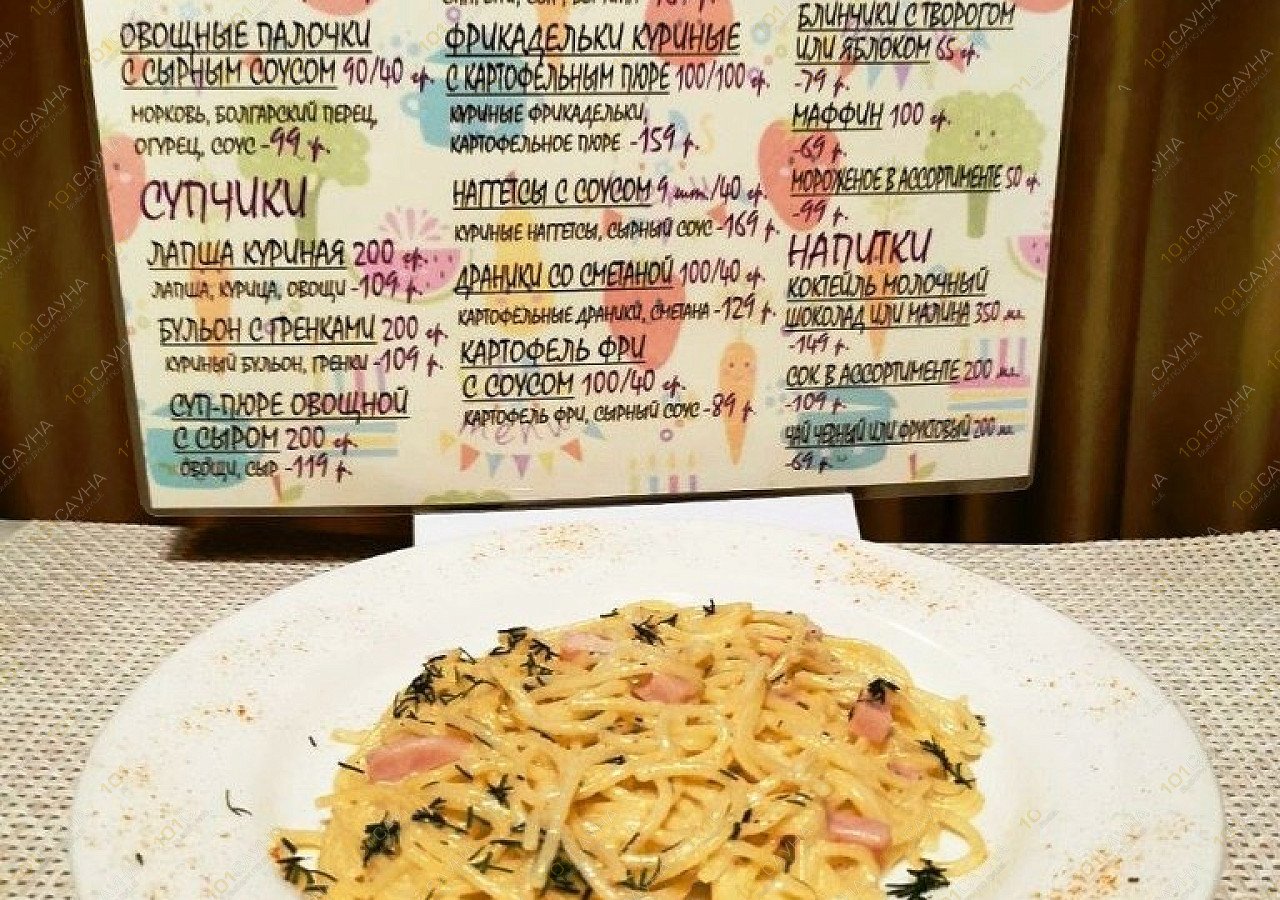 ОВОЩНЫЕ ПАЛОЧКИ
С СЫРНЫМ СОУСОМ 90/40 гр.
МОРКОВЬ, БОЛГАРСКИЙ ПЕРЕЦ,
ОГУРЕЦ, СОУС -99 р.
СУПЧИКИ
ЛАПША КУРИНАЯ 200 гр.
ЛАПША, КУРИЦА, ОВОЩИ -109 р.
БУЛЬОН С ГРЕНКАМИ 200 гр.
КУРИНЫЙ БУЛЬОН, ГРЕНКИ -109 р.
СУП-ПЮРЕ ОВОЩНОЙ
С СЫРОМ 200 гр.
ОВОЩИ, СЫР -119 р.
ФРИКАДЕЛЬКИ КУРИНЫЕ
С КАРТОФЕЛЬНЫМ ПЮРЕ 100/100 гр.
КУРИНЫЕ ФРИКАДЕЛЬКИ,
КАРТОФЕЛЬНОЕ ПЮРЕ -159 р.
НАГГЕТСЫ С СОУСОМ 9 шт./40 гр.
КУРИНЫЕ НАГГЕТСЫ, СЫРНЫЙ СОУС -169 р.
ДРАНИКИ СО СМЕТАНОЙ 100/40 гр.
КАРТОФЕЛЬНЫЕ ДРАНИКИ, СМЕТАНА -129 р.
КАРТОФЕЛЬ ФРИ
С СОУСОМ 100/40 гр.
КАРТОФЕЛЬ ФРИ, СЫРНЫЙ СОУС -89 р.
menu
БЛИНЧИКИ С ТВОРОГОМ
ИЛИ ЯБЛОКОМ 65 гр.
-79 р.
МАФФИН 100 гр.
-69 р.
МОРОЖЕНОЕ В АССОРТИМЕНТЕ 50 гр.
-99 р.
НАПИТКИ
КОКТЕЙЛЬ МОЛОЧНЫЙ
ШОКОЛАД ИЛИ МАЛИНА 350 мл.
-149 р.
СОК В АССОРТИМЕНТЕ 200 мл.
-109 р.
ЧАЙ ЧЕРНЫЙ ИЛИ ФРУКТОВЫЙ 200 мл.
-69 р.
101САУНА